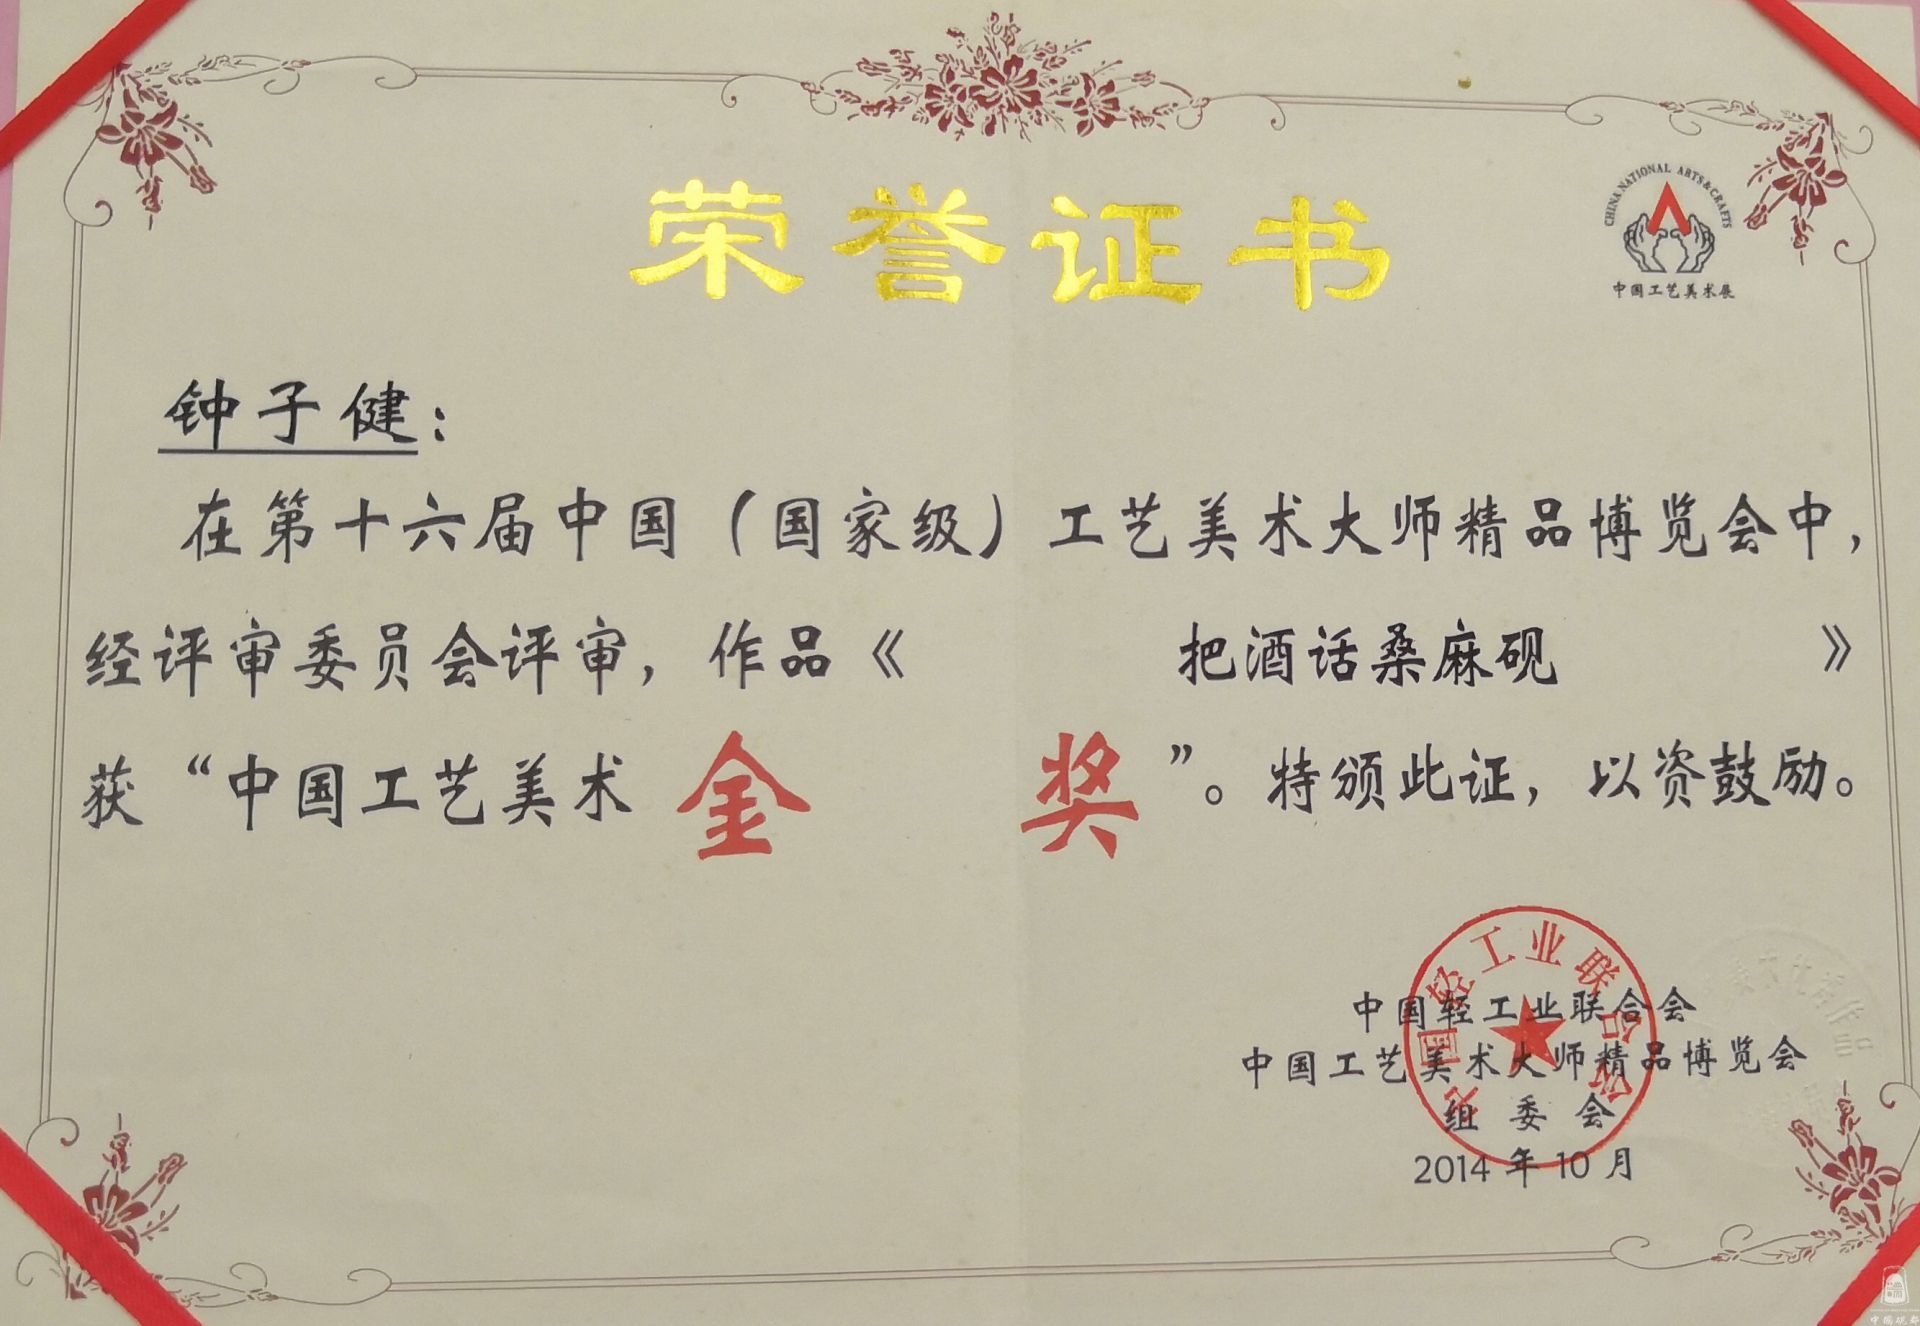 荣誉证书
CHINA NATIONAL ARTS & CRAFTS
中国工艺美术展
钟子健：
在第十六届中国（国家级）工艺美术大师精品博览会中，
经评审委员会评审，作品《 把酒话桑麻砚 》
获“中国工艺美术 金 奖”。特颁此证，以资鼓励。
中国轻工业联合会
中国轻工业联合会
中国工艺美术大师精品博览会
组委会
2014 年 10 月
中国砚都